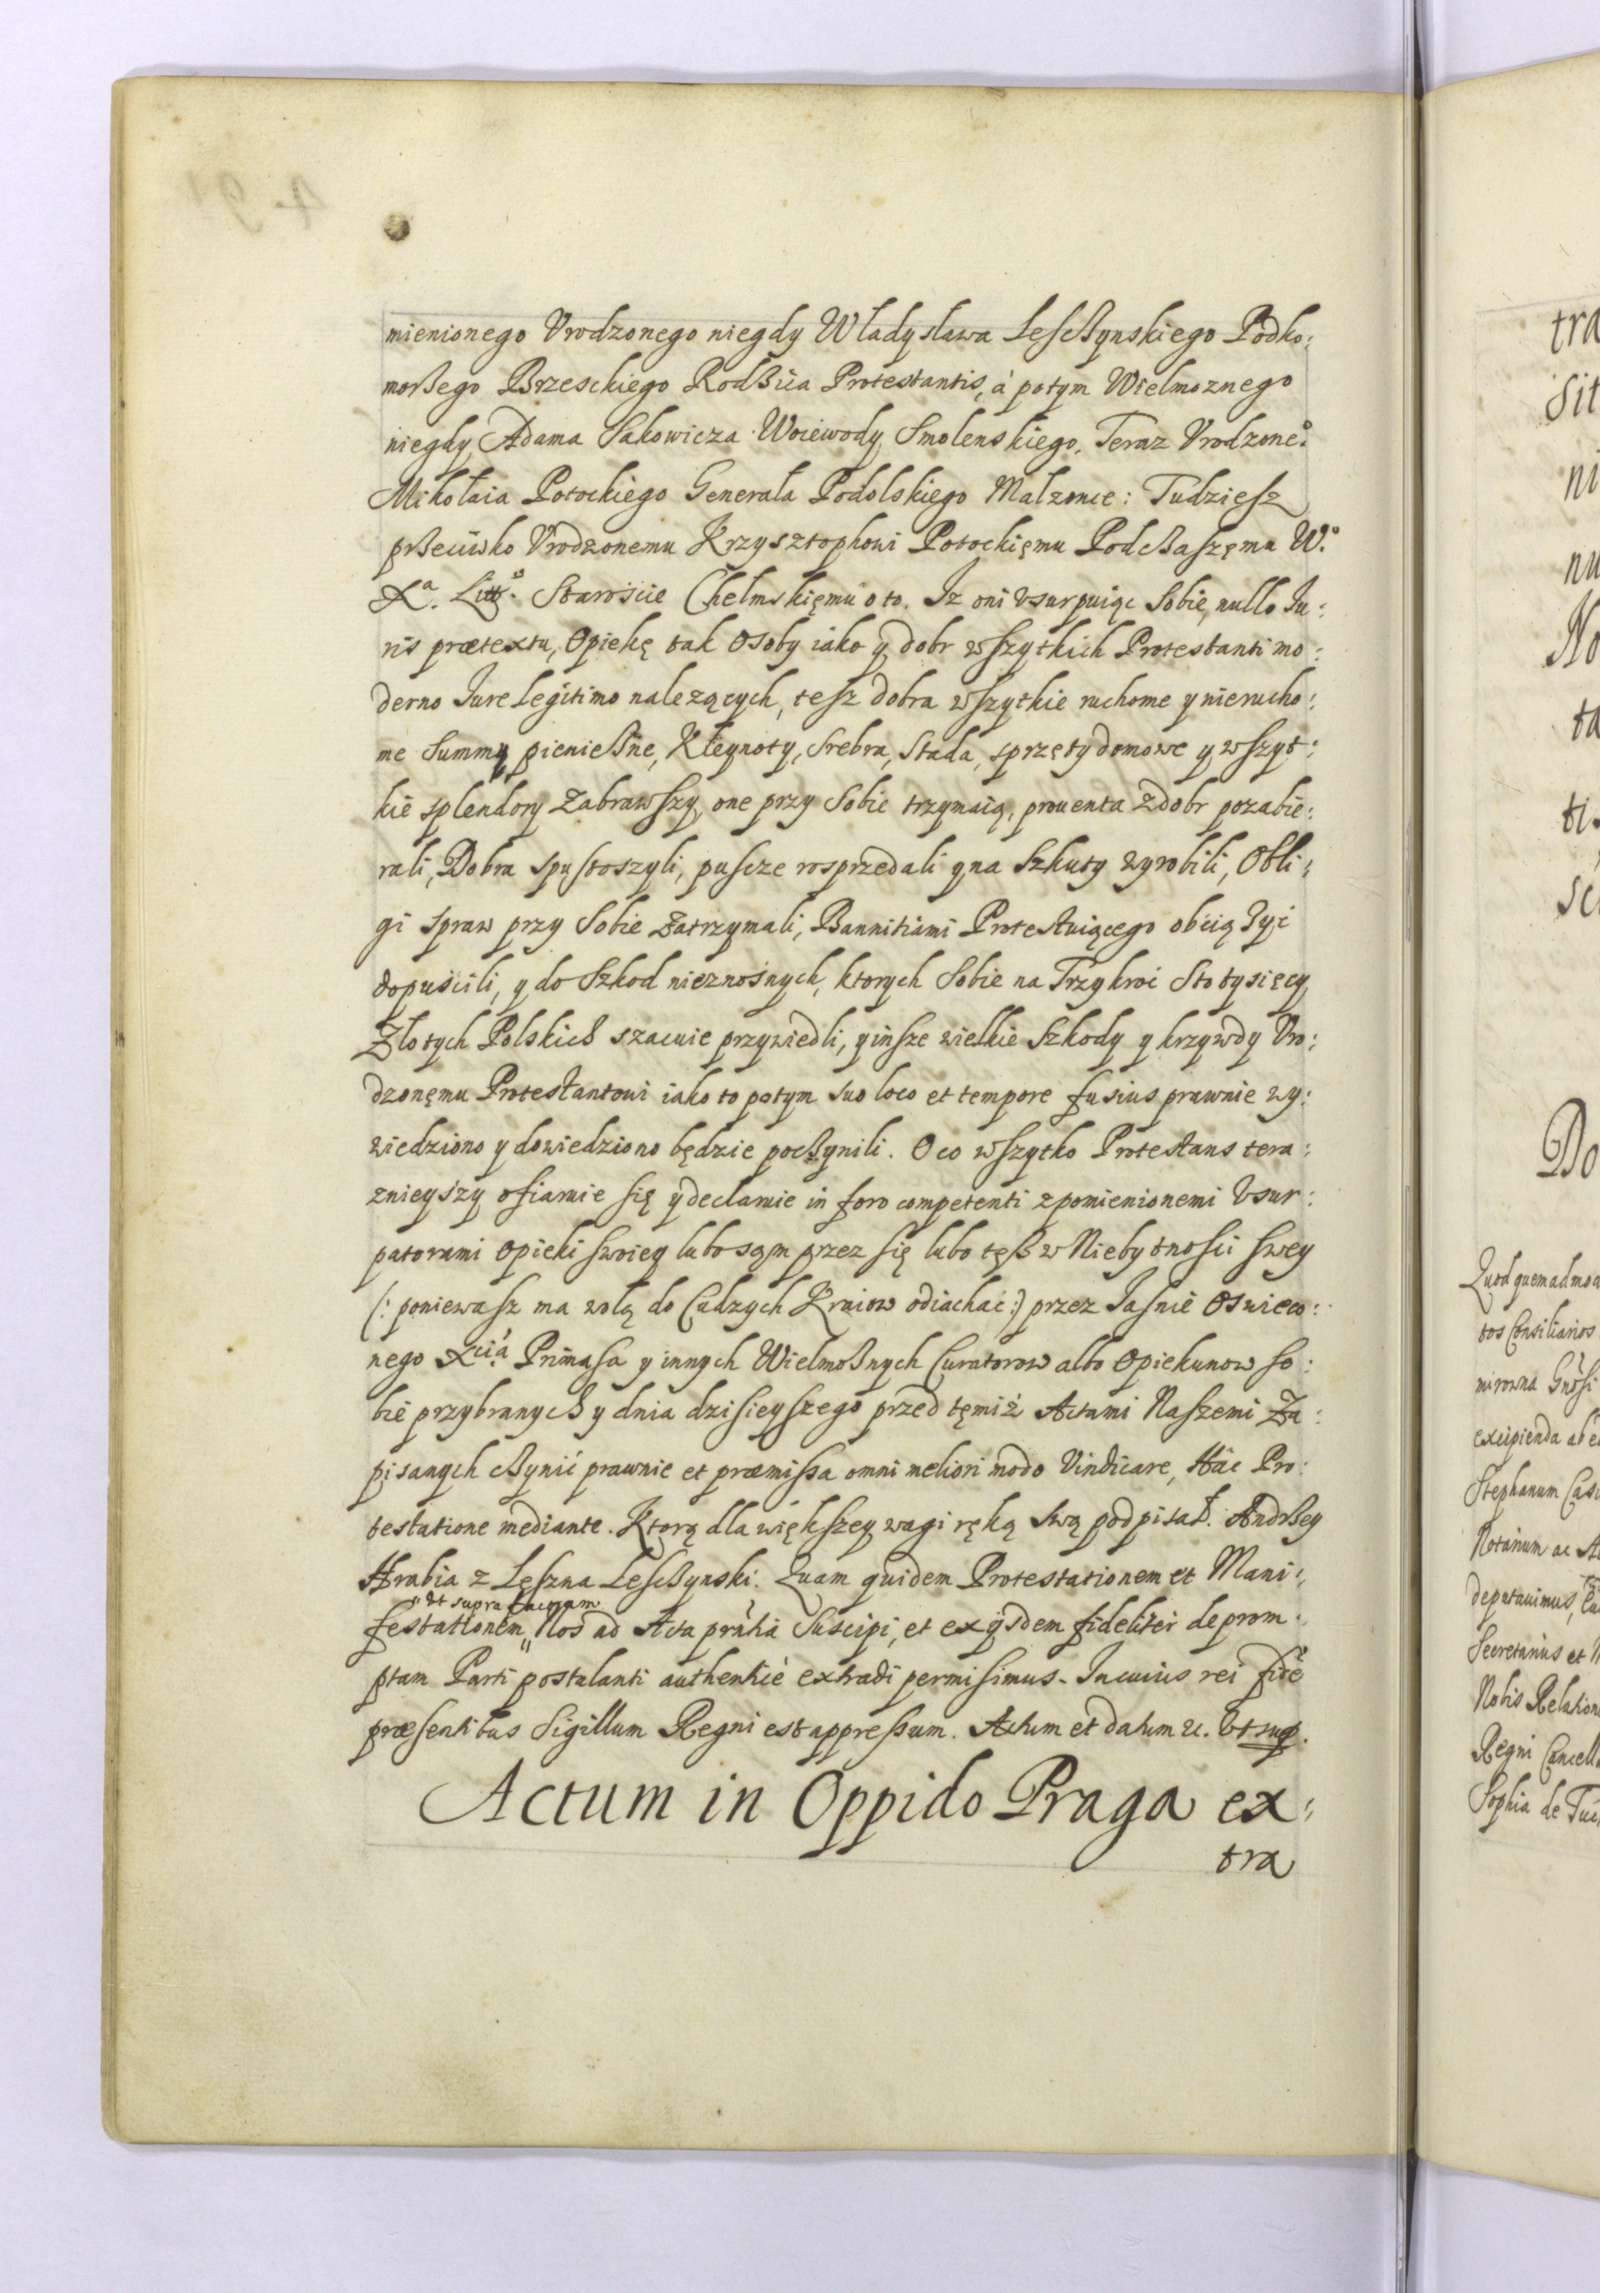 mienionego Vrodzonego niegdy Władysława Lescßynskiego Podko:
morßego Brzesckiego Rodßica Protestantis, á potym Wielmoznego
niegdy Adama Sakowicza Woiewody Smolenskiego, Teraz Vrodzone:º
Mikołaia Potockiego Generała Podolskiego Małzonce: Tudziesz
przeciwko Vrodzonemu Krzysztophowi Potockięmu Podcßaszęmu W.º
Xª. Littº. Starośćie Chełmskięmu o to. Iz oni vsurpuiąc sobie, nullo Iu:
ris prætextu, Opiekę tak Osoby iako y dobr wszytkich Protestanti mo:
derno Iure legitimo nalezących, tesz dobra wszytkie ruchome y nierucho:
me Summy pienießne, Kleynoty, Srebra, Stada, sprzęty domowe y wszyt:
kie splendory zabrawszy, one przy Sobie trzymaią, prouenta z dobr pozabie:
rali, Dobra spustoszyli, puscze rosprzedali y na Szkuty wyrobili, Obli:
gi spraw przy Sobie zatrzymali, Bannitiami Protestuiącego obciązyć
dopuścili, y do Szkod nieznośnych, ktorych Sobie na Trzykroć Sto tysięcy
Złotych Polskich szacuie przywiedli, y insze wielkie Szkody y krzywdy Vro:
dzonęmu Protestantowi iako to potym suo loco et tempore fusius prawnie wy:
wiedziono y dowiedziono będzie pocßynili. O co wszytko Protestans tera:
znieyszy ofiaruie się y declaruie in foro competenti z pomienionemi Vsur:
patorami opieki swoiey lubo sam przez się lubo tęß w Niebytnosci swey
(: poniewasz ma wolą do Cudzych Kraiow odiachać :) przez Iasnie Oswieco:
nego Xciá Primasa y innych Wielmoßnych Curatorow albo Opiekunow so:
bie przybranych y dnia dzisieyszego przed tęmiż Actami Naszemi Za:
pisanych cßynić prawnie et præmissa omni meliori modo Vindicare, Hac Pro:
testatione mediante. Ktorą dla większey wagi ręką swą podpisał. Andrßey
Hrabia z Lęszna Lescßynski. Quam quidem Protestationem et Mani:
" vt supra factam
festationem " Nos ad Acta prntia Suscipi, et ex ijsdem fideliter deprom:
ptam Parti postulanti authenticè extradi permisimus. In cuius rei fidē
præsentibus Sigillum Regni est appressum. Actum et datum uc. Vt sup.
Actum in Oppido Praga ex:
tra
tra
Sit
ni
nu
No
ta
ti
sc
Do
Quod quemadmo
tos Consiliarios
mirowna Gnosi
excipienda ab e
Stephanum Cas
Notarium ac A
deputauimus,
Secretarius et
Nobis Relation
Regni Cancell
Sophia de